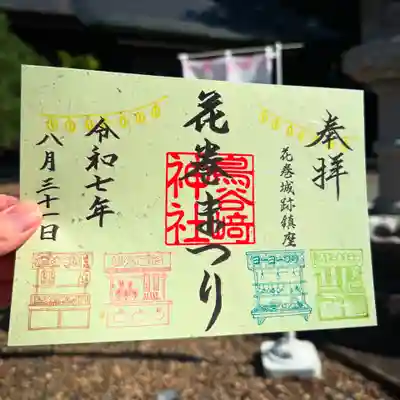 奉拝
花巻城跡鎮座
花巻まつり
鳥谷崎
神社
令和七年
八月三十一日
ヨーヨーつり